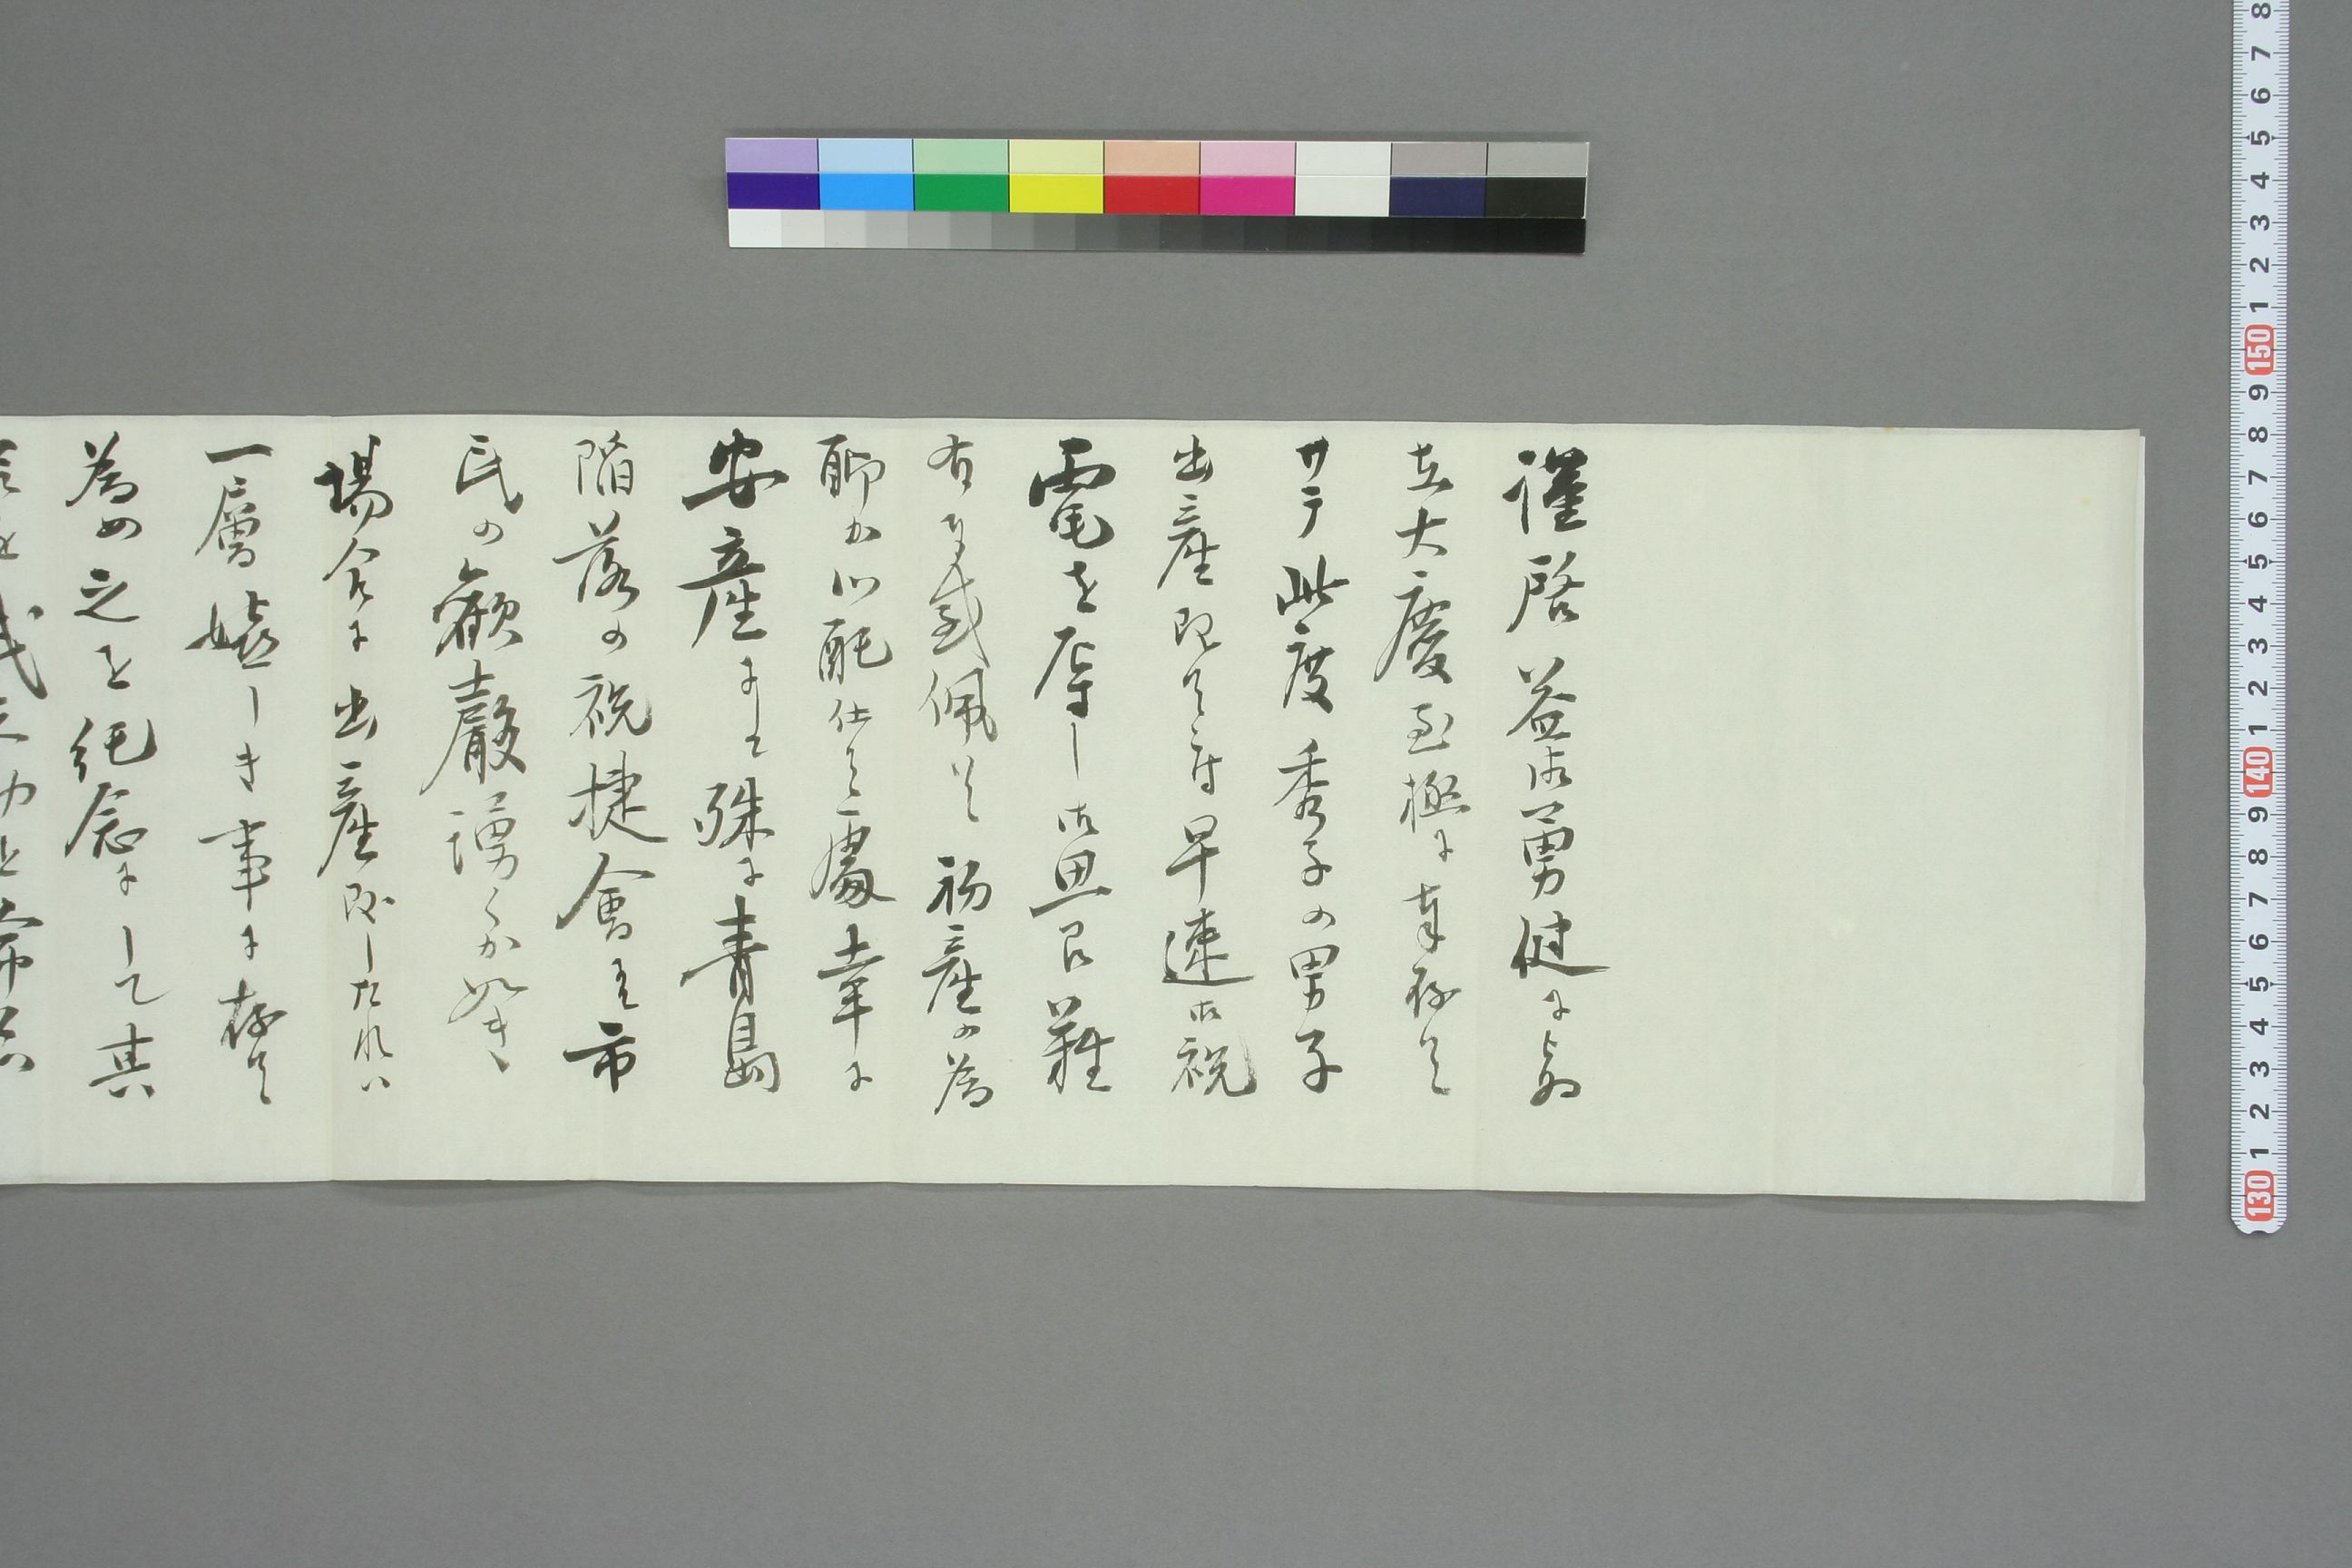 謹啓益御勇健に被為
在大慶至極に奉存候
サテ此度秀子の男子
出産致候付早速御祝
電を辱し御思召難
有感佩候初産の為
聊か心配仕候處幸に
安産にて殊に青島
陥落の祝捷會にて市
民の歓聲湧くか如き
場合に出産致したれハ
一層嬉しき事に存候
為め之を紀念にして其